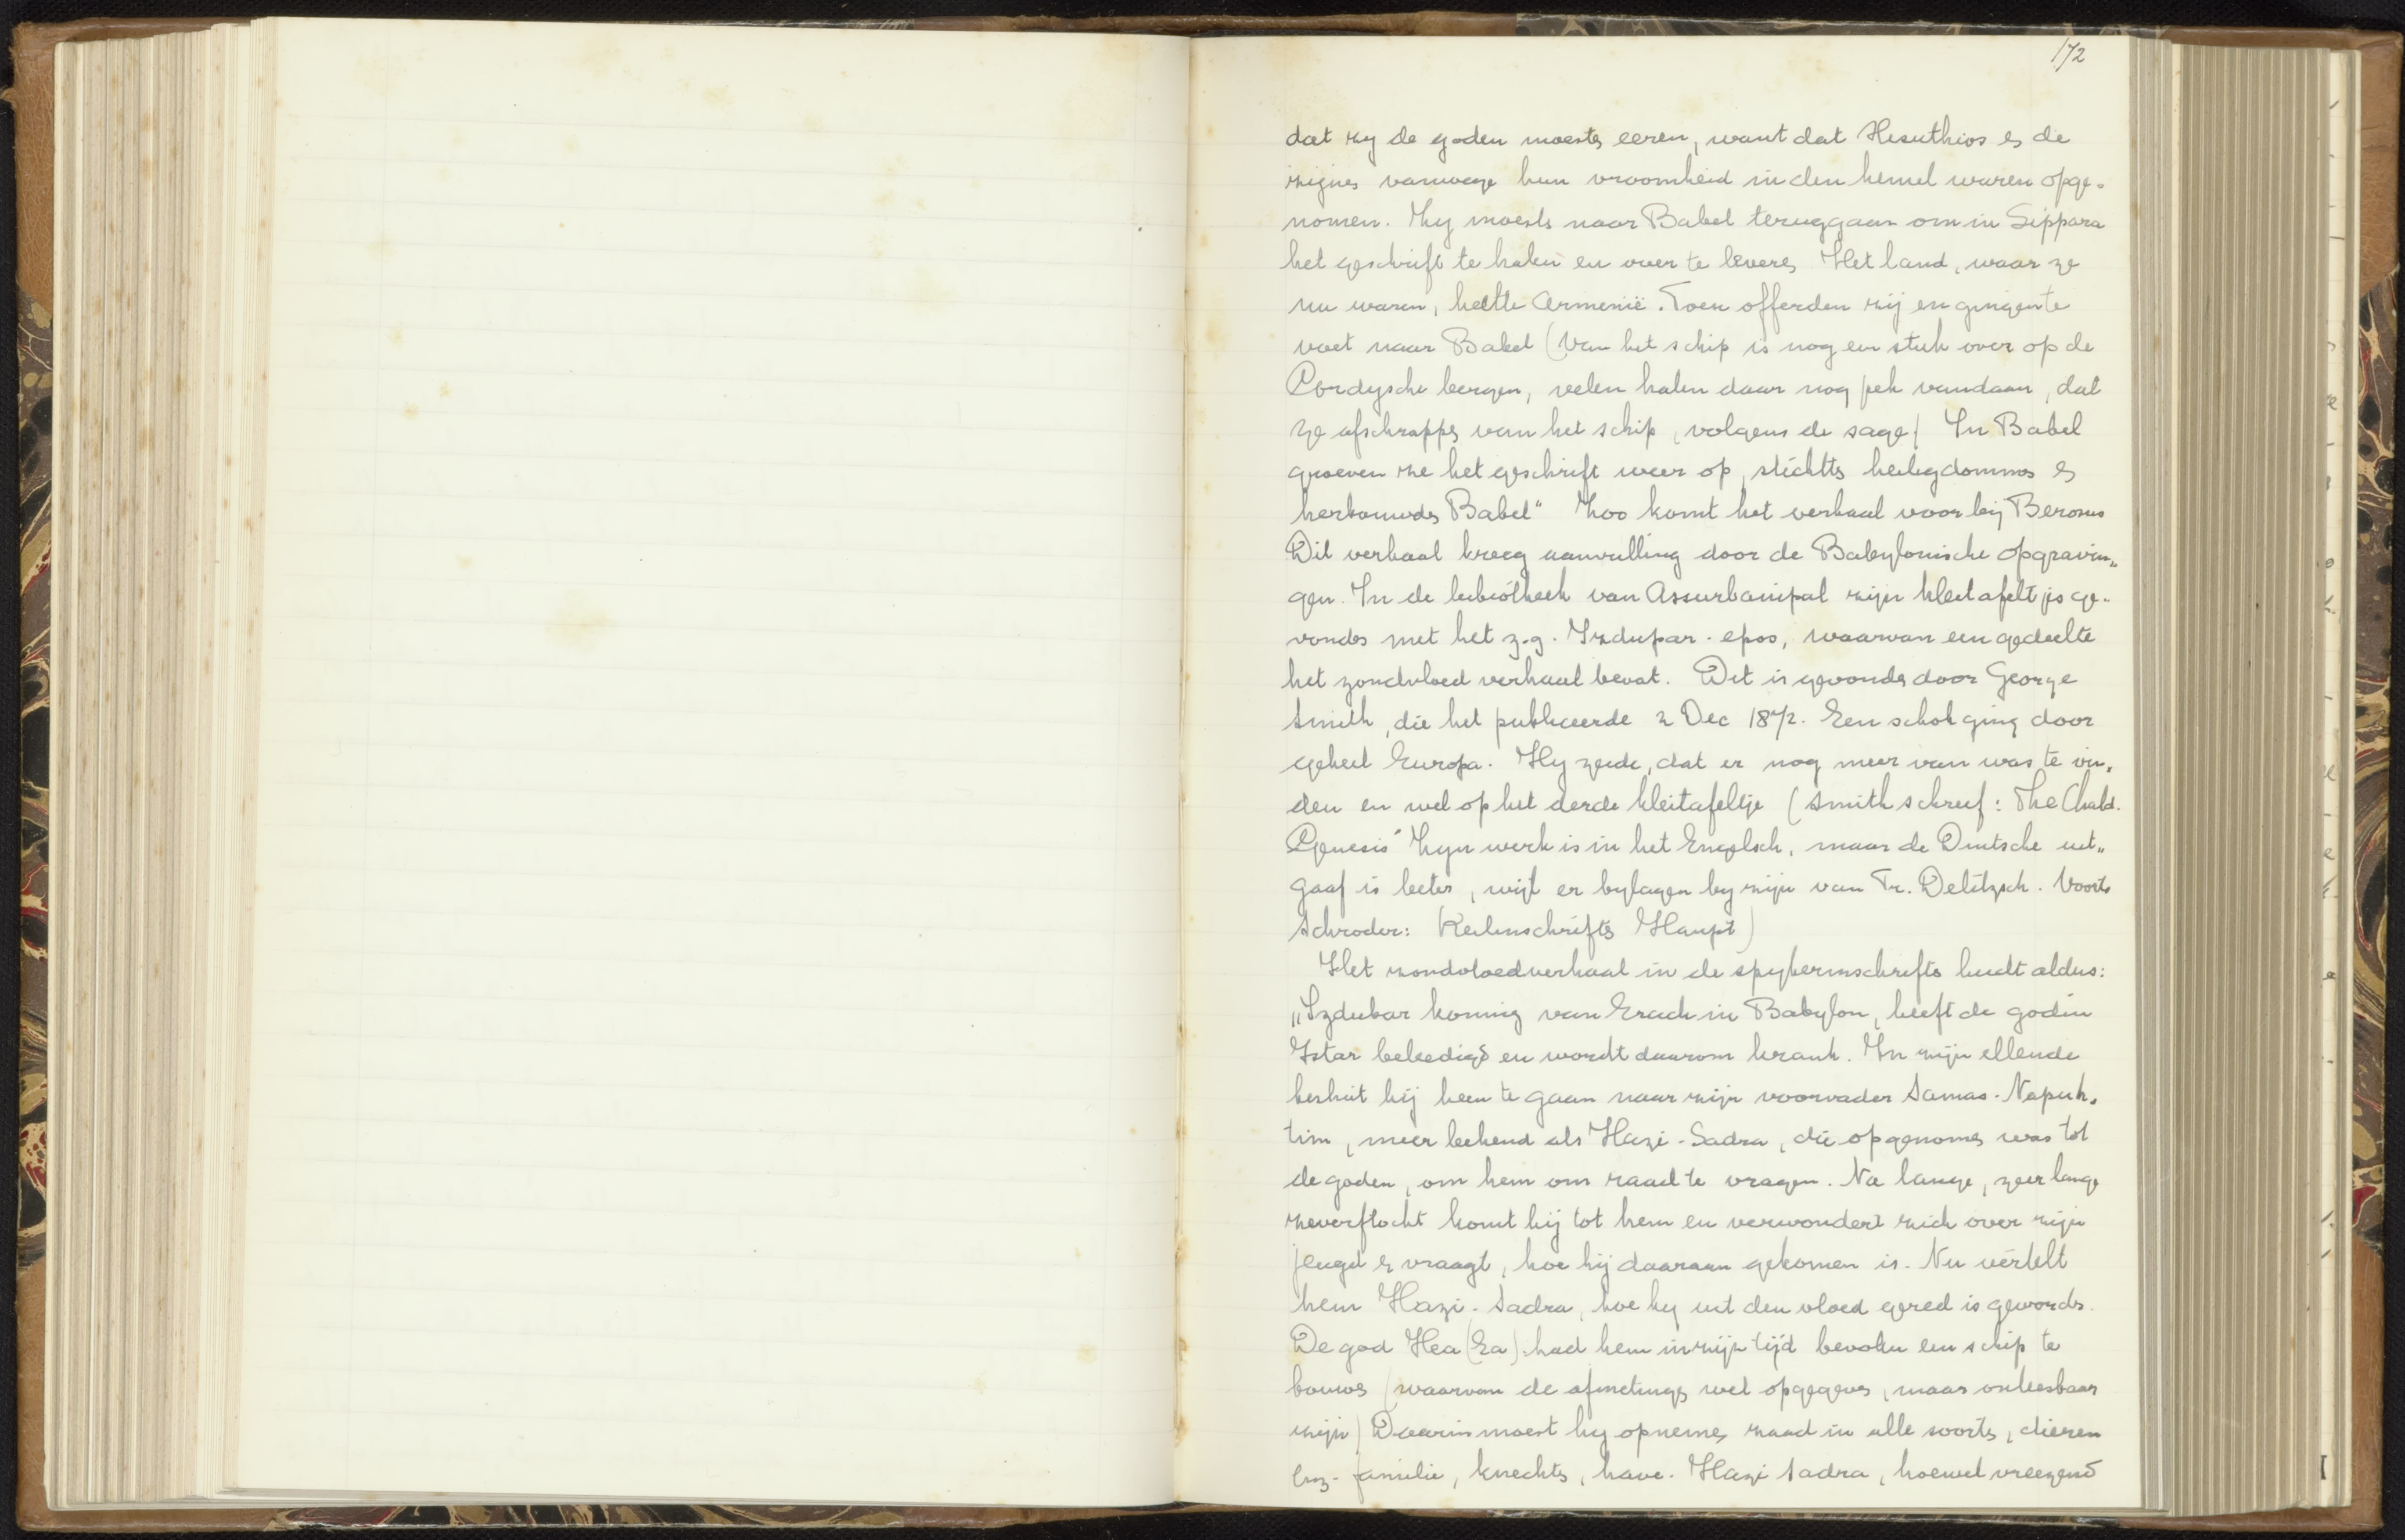 172
dat zy de goden moesten eeren, want dat Hesuthios en de
zijnen vanwege hun vroomheid in den hemel waren opge-
nomen. Zy moesten naar Babel teruggaan om in Sippara
het geschrift te halen en over te leveren Het land, waar ze
nu waren, heette Armenië. Toen offerden zij en gingen te
voet naar Babel (Van het schip is nog een stuk over op de
Cordysche bergen, velen halen daar nog pek vandaan, dat
ze afschrappen van het schip, volgens de sage) In Babel
groeven ze het geschrift weer op, stichtten heiligdommen en
herbouwden Babel" Zoo komt het verhaal voor bij Berosus
Dit verhaal kreeg aanvulling door de Babylonische opgravin„
gen. In de bibiotheek van Assurbanipal zijn kleitafeltjes ge-
vonden met het z.g. Izdupar-epos, waarvan een gedeelte
het zondvloed verhaal bevat. Dit is gevonden door George
Smith, die het publiceerde 2 Dec 1872. Een schok ging door
geheel Europa. Hy zeide, dat er nog meer van was te vin-
den en wel op het derde kleitafeltje (Smith schreef: The Chald.
Genesis" Zyn werk is in het Engelsch, maar de Duitsche uit„
gaaf is beter, wijl er bylagen by zijn van Fr. Delitzsch. Voorts
Schroder: Keilinschriften Haupt)
Het zondvloedverhaal in de spykerinschriften luidt aldus:
„Izdubar koning van Erech in Babylon, heeft de godin
Istar beleedigd en wordt daarom krank. In zijn ellende
besluit hij heen te gaan naar zijn voorvader Samas-Napisch-
tim, meer bekend als Hazi-Sadra, die opgenomen was tot
de goden, om hem om raad te vragen. Na lange, zeer lange
zwerftocht komt hij tot hem en verwondert zich over zijn
jeugd en vraagt, hoe hij daaraan gekomen is. Nu vertelt
hem Hazi-Sadra, hoe hy uit den vloed gered is geworden.
De god Hea (Ea) had hem in zijn tijd bevolen een schip te
bouwen (waarvan de afmetingen wel opgegeven, maar onleesbaar
zijn) Daarin moest hy opnemen zaad in alle soorten, dieren
enz. familie, knechten, have. Hazi Sadra, hoewel vreezend